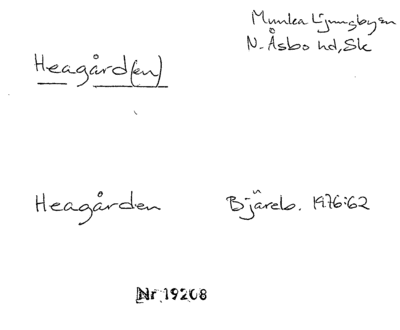 Munka Ljungbyen
N. Åsbo hd, Sk
Heagård(en)
Heagården Bjäreb. 1976:62
Nr 19208